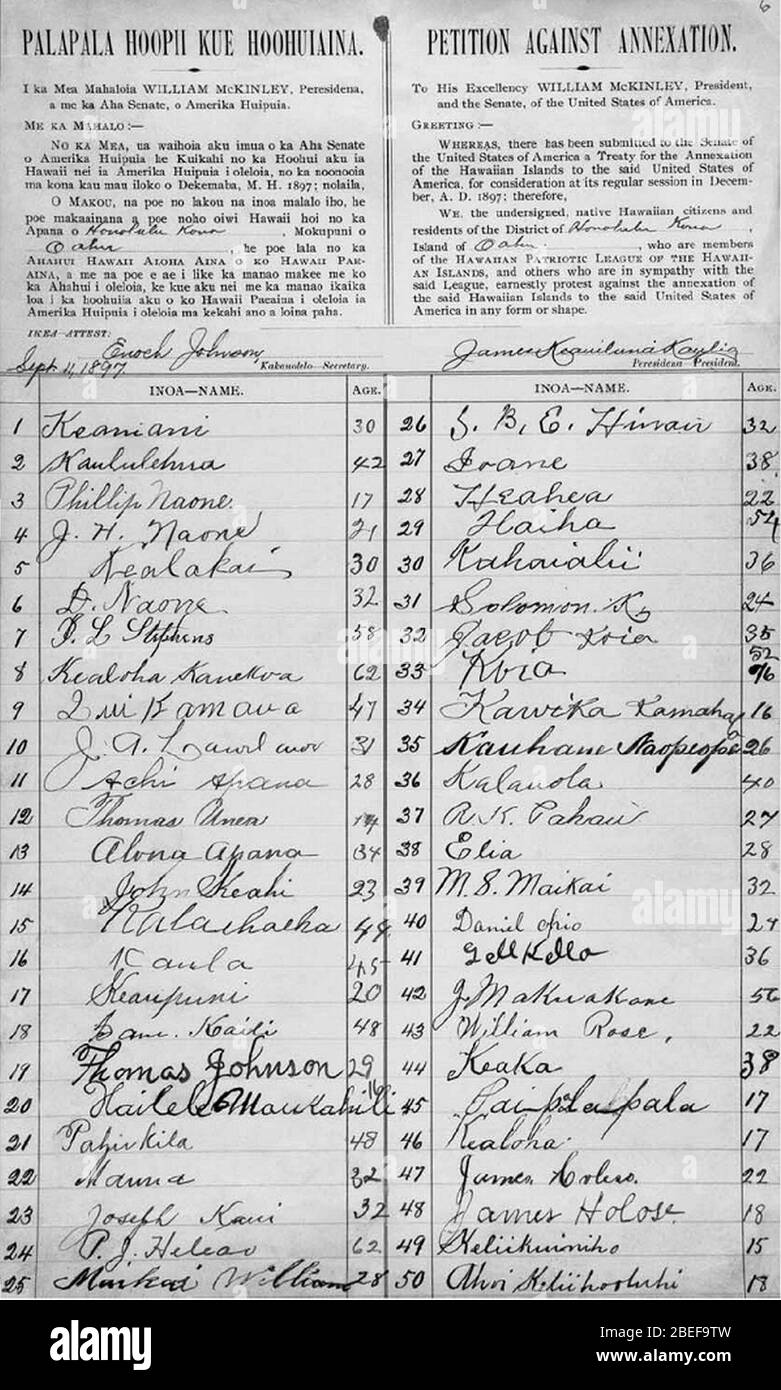 6
PALAPALA HOOPII KUE HOOHUIAINA.
I ka Mea Mahaloia WILLIAM McKINLEY, Peresidena,
a me ka Aha Senate, o Amerika Huipuia.
ME KA MAHALO:—
NO KA MEA, ua waihoia aku imua o ka Aha Senate
o Amerika Huipuia he Kuikahi no ka Hoohui aku ia
Hawaii nei ia Amerika Huipuia i oleloia, no ka noonooia
ma kona kau mau iloko o Dekemaba, M. H. 1897; nolaila,
O MAKOU, na poe no lakou na inoa malalo iho, he
poe makaainana a poe noho oiwi Hawaii hoi no ka
Apana o Honolulu Kona, Mokupuni o
Oahu, he poe lala no ka
AHAHUI HAWAII ALOHA AINA O KO HAWAII PAE-
AINA, a me na poe e ae i like ka manao makee me ko
ka Ahahui i oleloia, ke kue aku nei me ka manao ikaika
loa i ka hoohuiia aku o ko Hawaii Paeaina i oleloia ia
Amerika Huipuia i oleloia ma kekahi ano a loina paha.
PETITION AGAINST ANNEXATION.
To His Excellency WILLIAM McKINLEY, President,
and the Senate, of the United States of America.
GREETING:—
WHEREAS, there has been submitted to the Senate of
the United States of America a Treaty for the Annexation
of the Hawaiian Islands to the said United States of
America, for consideration at its regular session in Decem-
ber, A. D. 1897; therefore,
WE, the undersigned, native Hawaiian citizens and
residents of the District of Honolulu Kona,
Island of Oahu, who are members
of the HAWAIIAN PATRIOTIC LEAGUE OF THE HAWAII-
AN ISLANDS, and others who are in sympathy with the
said League, earnestly protest against the annexation of
the said Hawaiian Islands to the said United States of
America in any form or shape.
IKEA—ATTEST:
Sept 11, 1897 Enoch Johnson
Kakauolelo—Secretary.
James Keauiluna Kaulia
Peresidena—President.
INOA—NAME. AGE.
1 Keaniani 30
2 Kaululehua 42
3 Phillip Naone. 17
4 J. H. Naone 21
5 Kealakai 30
6 D. Naone. 32
7 L Stephens 58
8 Kealoha 62
9 Kamaua 47
10 J. A. 31
11 Achi Apana 28
12 Thomas Unea 14
13 Alona Apana 34
14 John Keahi 23
15
16 Kaula 45
17 Keaupuni 20
18 Sam. Kaili 48
19 Thomas Johnson 29
20 Hailele Maukahili 16
21 48
22 Manna 32
23 Joseph Kaui 32
24 P. J. 62
25 William 28
INOA—NAME. AGE.
26 S. B. E. 32
27 Ioane 38
28 Heahea 22
29 Haiha 54
30 Kahaialii 36
31 Solomon. K. 24
32 Jacob Koia 35
33 Koia 52 76
34 Kawika Kamahaa 16
35 Kauhane Naopeope 26
36 Kalauola 40
37 A. K. Pahau 27
38 Elia 28
39 M. S. Maikai 32
40 Daniel Opio 24
41 36
42 J. Makuakane 56
43 William Rose, 22
44 Keaka 38
45 Paipalapala 17
46 Kealoha. 17
47 James 22
48 James Holose. 18
49 Keliikuiniho 15
50 Ahoi Keliihooluhi 18
alamy
Image ID: 2BEF9TW
www.alamy.com